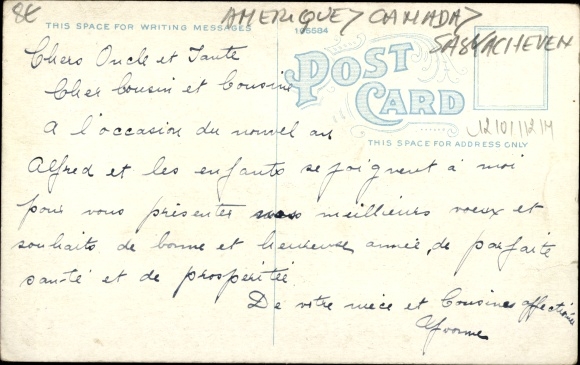 8€
AMERIQUE > CANADA >
SASKACHEVEN
THIS SPACE FOR WRITING MESSAGES
105584
POST CARD
THIS SPACE FOR ADDRESS ONLY
Chers Oncle et Tante
Cher Cousin et Cousine
A l'occasion du nouvel an
Alfred et les enfants se joignent à moi
pour vous présenter nos meilleurs voeux et
souhaits de bonne et heureuse année, de parfaite
santé et de prospérité
De votre nièce et Cousine affectionée
Yvonne